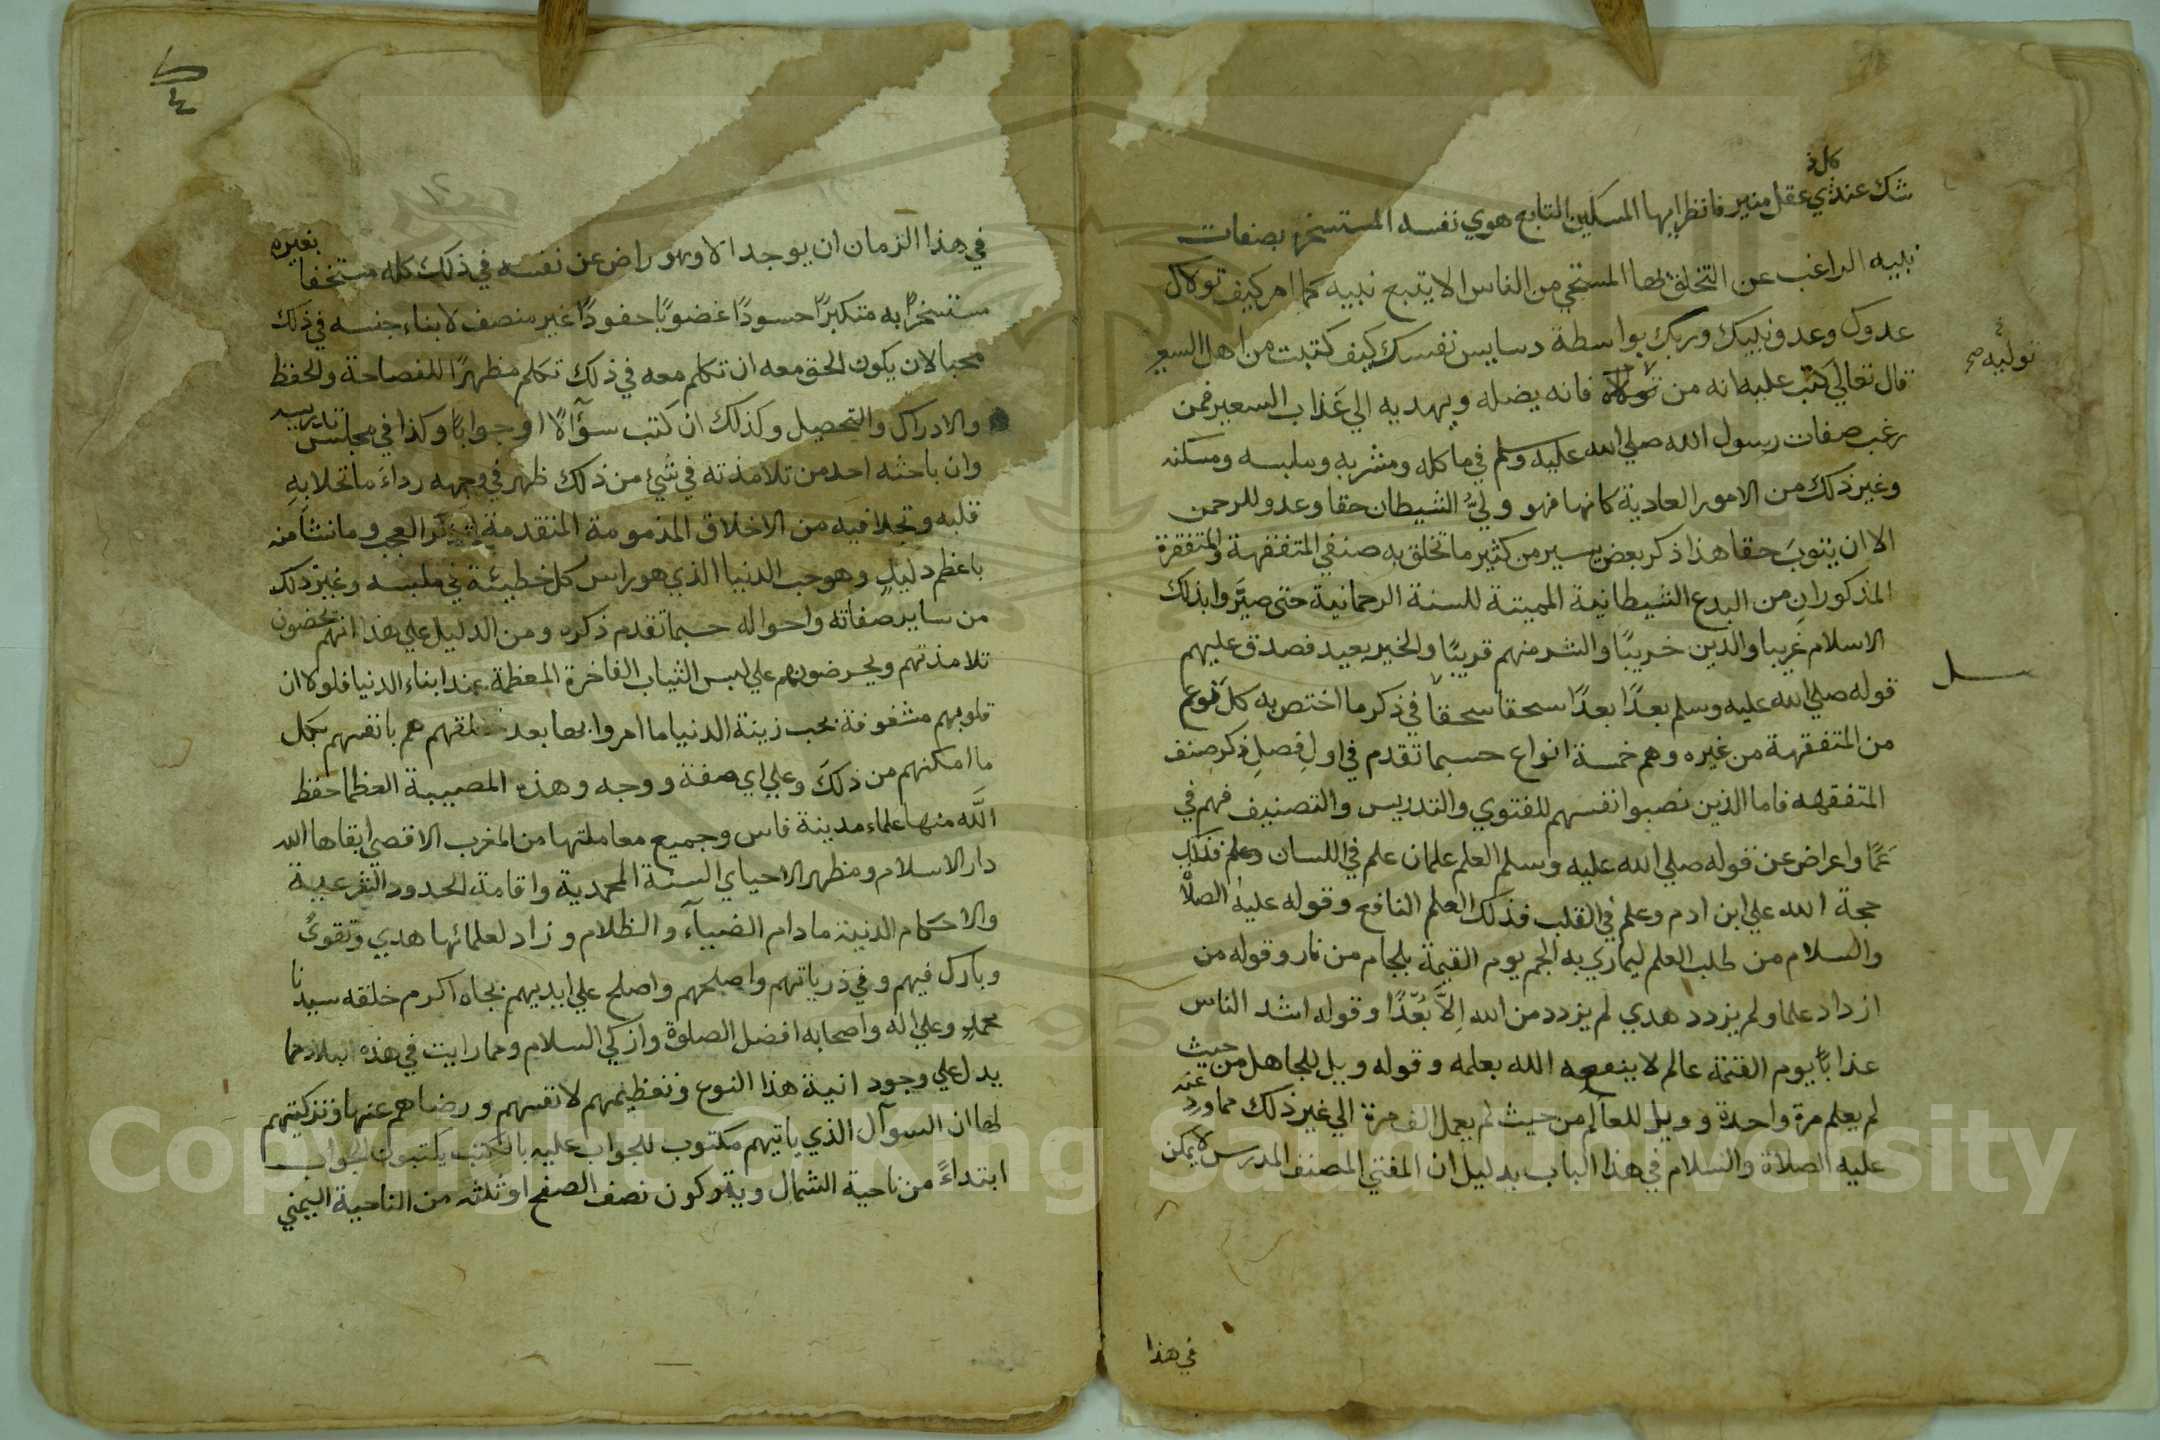 شك عند كل ذي عقل منير فانظر ايها المسكين التابع هوي نفسه المستسخر بصفات
نبيه الراغب عن التخلق بها المستحي من الناس الا يتبع نبيه كما امر كيف تولاك
عدوك وعدو نبيك وربك بواسطة دسايس نفسك كيف كتبت من اهل السعير
توليه صح
قال تعالي كتب عليه انه من تولاه فانه يضله ويهديه الي عذاب السعير فمن
رغب صفات رسول الله صلي الله عليه وسلم في ماكله ومشربه وملبسه ومسكنه
وغير ذلك من الامور العادية كانها فهو وليُّ الشيطان حقا وعدو للرحمن
الا ان يتوبَ حقا هذا ذكر بعض يسير من كثير ما تخلق به صنفي المتفقهة والمتفقرة
المذكورانِ من البدع الشيطانية المميتة للسنة الرحمانية حتى صيَّروا بذلك
الاسلام غريبا والدين خريبًا والشر منهم قريبًا والخير بعيد فصدق عليهم
قوله صلي الله عليه وسلم بعدًا بعدًا سحقا سحقاً في ذكر ما اختص به كل نوع
من المتفقهة من غيره وهم خمسة انواع حسبما تقدم في اول فصلِ ذكر صنف
المتفقهه فاما الذين نصبوا انفسهم للفتوي والتدريس والتصنيف فهم في
عَمًا واعراض عن قوله صلي الله عليه وسلم العلم علمان علم في اللسان وعلم فذلك
حجة الله علي ابن ادم وعلم في القلب فذلك العلم النافع وقوله عليه الصلاة
والسلام من طلب العلم ليماري به الجم يوم القيمة بلجام من نار وقوله من
ازداد علما ولم يزدد هدي لم يزدد من الله اِلاَّ بُعّدًا وقوله اشد الناس
عذاباً يوم القيمة عالم لا ينفعه الله بعلمه وقوله ويل للجاهل من حيث
لم يعلم مرة واحدة وويل للعالم من حيث لم يعمل الف مرة الي غير ذلك مما ورد عنه
عليه الصلاة والسلام في هذا الباب بدليل ان المفتي المصنف المدرس لا يمكن
في هذا
في هذا الزمان ان يوجد الا وهو راض عن نفسه في ذلك كله مستخفا بغيره
مستسخرًا به متكبرًا حسودًا غضوبًا حقودًا غير منصف لابناء جنسه في ذلك
محبا لان يكون الحق معه ان تكلم معه في ذلك تكلم مظهرًا للفصاحة والحفظ
والادراك والتحصيل وكذلك ان كتب سؤآلاً او جواباً وكذا في مجلس تدريسه
وان باحثه احد من تلامذته في شيئ من ذلك ظهر في وجهه رداءَ ما تحلا بهِ
قلبه وتجلا فيه من الاخلاق المذمومة المتقدمة العجب وما نشأ منه
باعظم دليل وهو حب الدنيا الذي هو راس كل خطيئة في ملبسه وغير ذلك
من ساير صفاته واحواله حسبما تقدم ذكره ومن الدليل علي هذا انهم يحضون
تلامذتهم ويحرضونهم علي لبس الثياب الفاخرة المعظمة عند ابناء الدنيا فلولا ان
قلوبهم مشغوفة بحب زينة الدنيا ما امروا بها بعد تخلقهم هم بانفسهم بكل
ما امكنهم من ذلكَ وعلي اي صفة ووجه وهذه المصيبة العظما حفظ
اللَّه منها علماء مدينة فاس وجميع معاملتها من المغرب الاقصي ابقاها الله
دار الاسلام ومظهر الاحياي السنة المحمدية واقامة الحدود الشرعية
والاحكام الدينية ما دام الضيآء والظلام وزاد لعلمائها هدي وتقويً
وبارك فيهم وفي ذرياتهم واصلحهم واصلح علي ايديهم بجاه اكرم خلقه سيدنا
محمدٍ وعلي اله واصحابه افضل الصلوة وازكي السلام ومما رايت في هذه البلاد مما
يدل علي وجود انية هذا النوع وتعظيمهم لانفسهم ورضاهم عنها وتزكيتهم
لها ان السوآل الذي ياتيهم مكتوب للجواب عليه بالكتب يكتبون الجواب
ابتداءً من ناحية الشمال ويتركون نصف الصفح او ثلثه من الناحية اليمني